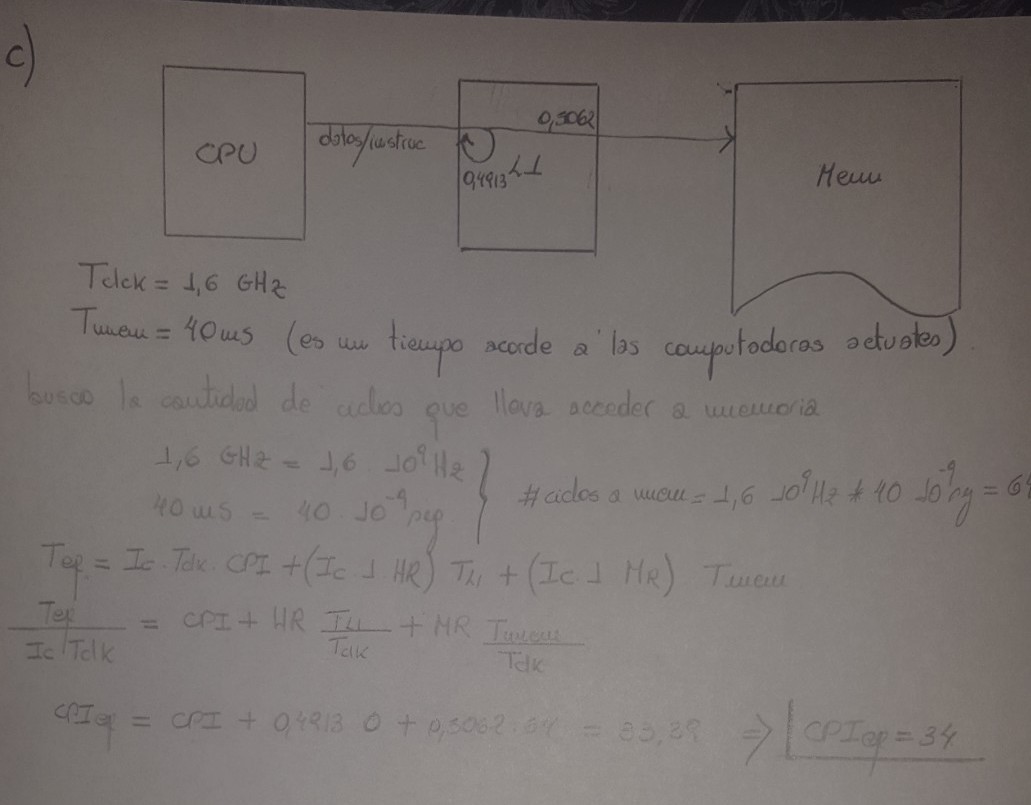 c)
CPU
datos/instruc
0,5062
0,4913 L1
Mem
Tclck = 1,6 GHz
Tmem = 40ms (es un tiempo acorde a las computadoras actuales).
busco la cantidad de ciclos que lleva acceder a memoria
1,6 GHz = 1,6 10⁹Hz
40ms = 40. 10⁻⁹seg
#ciclos a mem = 1,6 10⁹Hz * 40 10⁻⁹seg = 64
Tep = Ic. Tclk. CPI + (Ic 1 HR) TL1 + (Ic 1 MR) Tmem
Tep / Ic Tclk = CPI + HR TL1/Tclk + MR Tmem/Tclk
CPIep = CPI + 0,4913 0 + 0,5062.64 = 33,39 ⇒ CPIep = 34